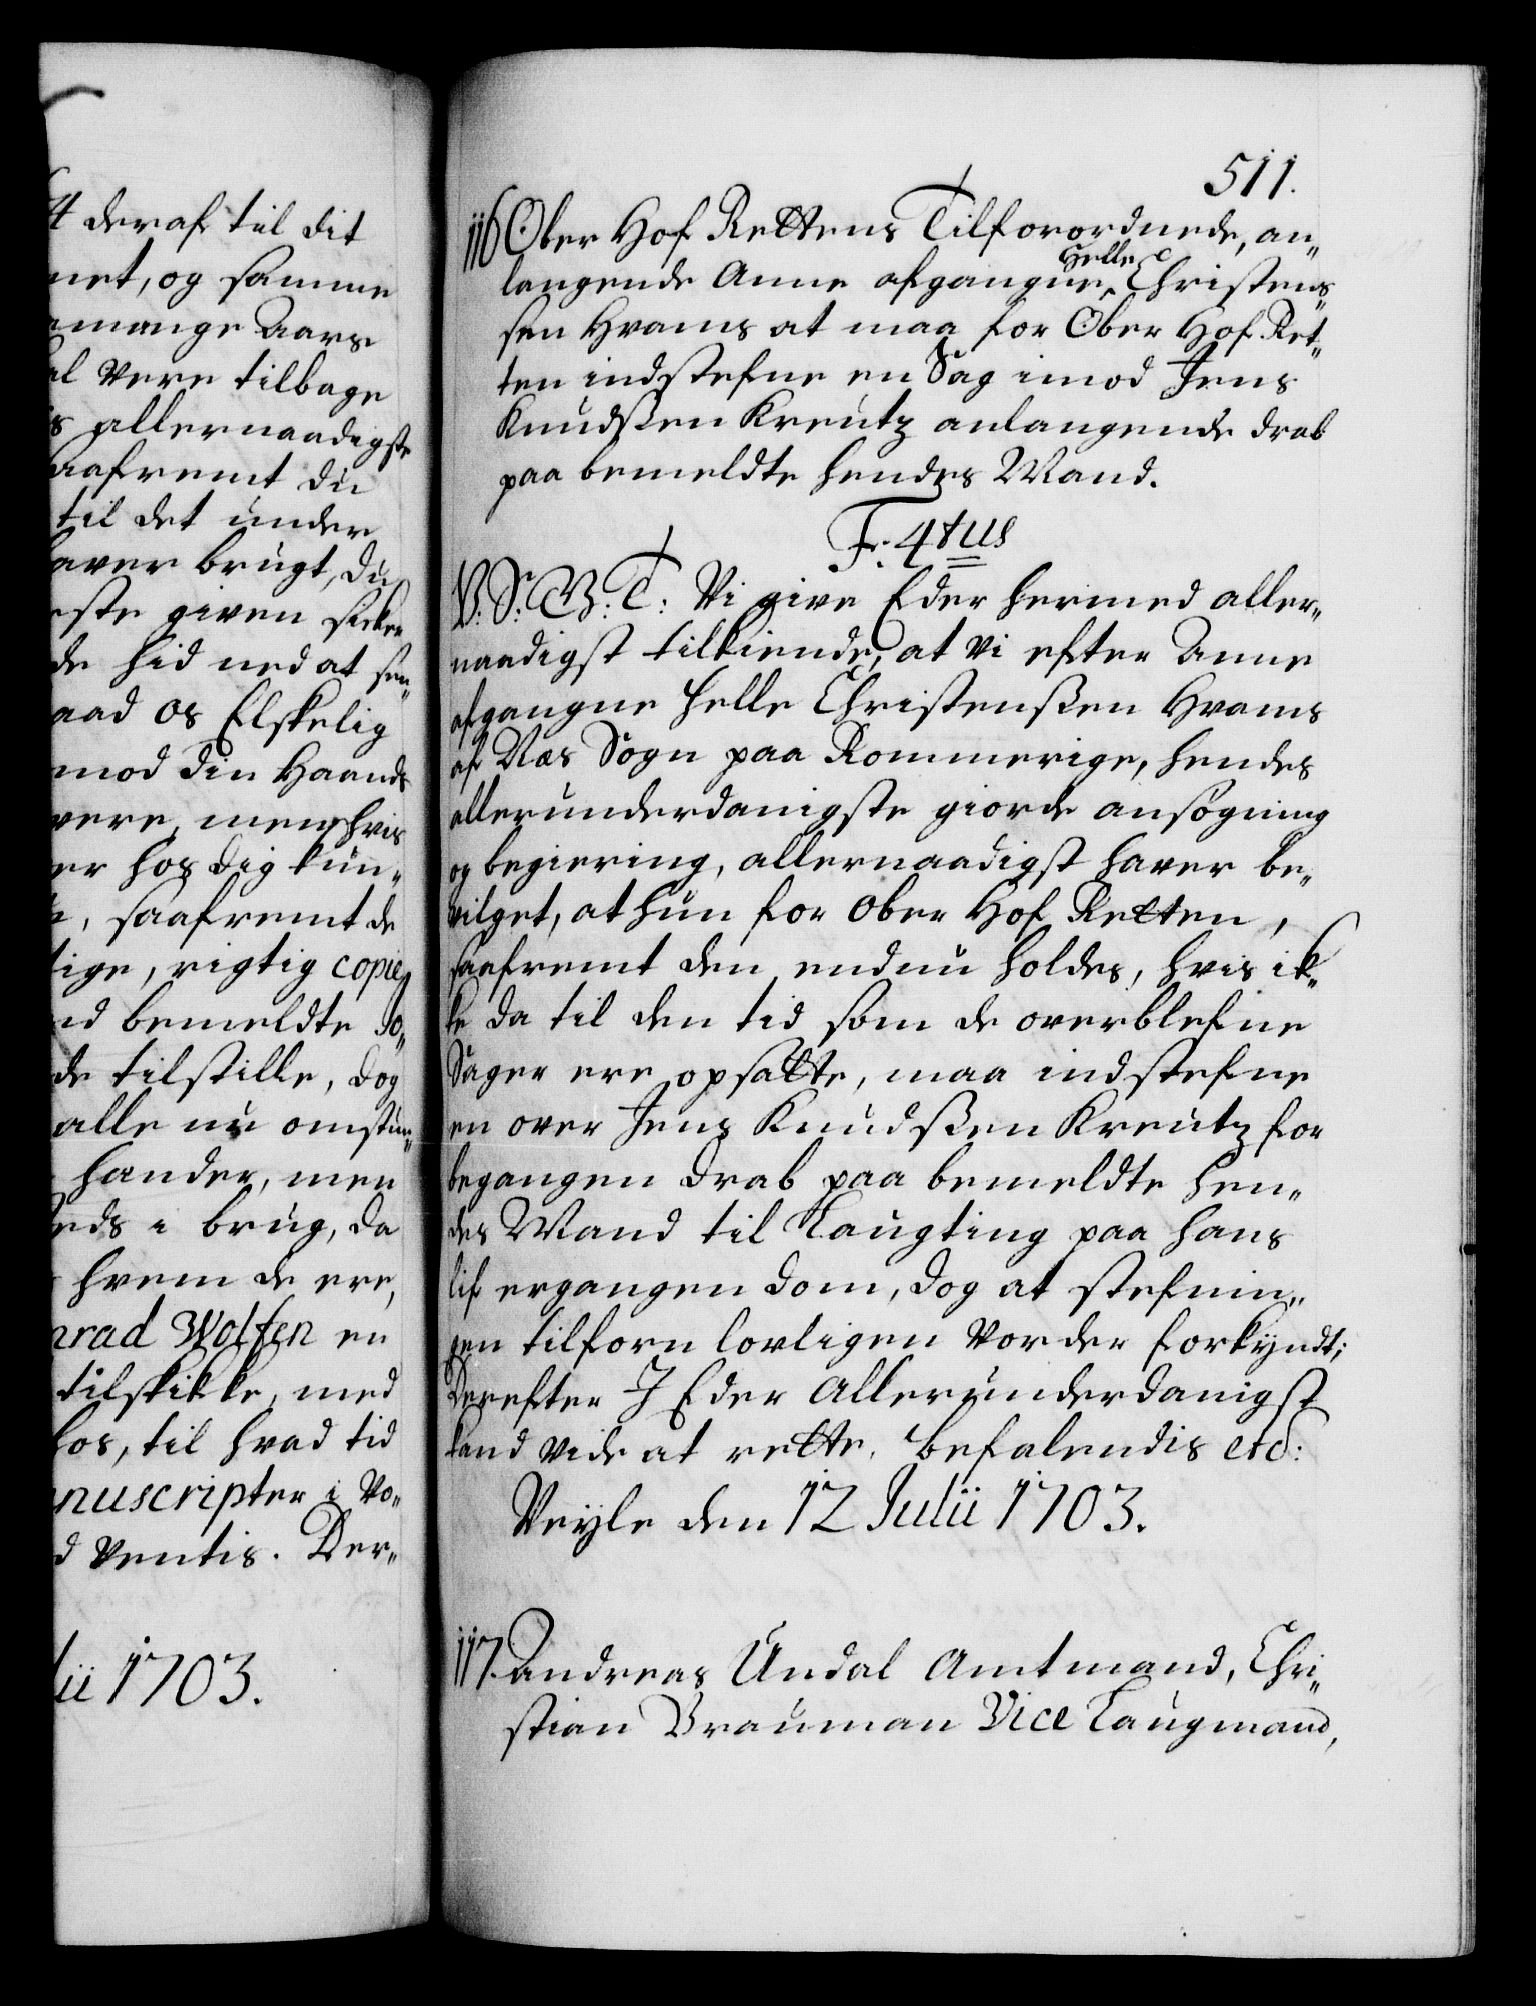 t deraf til dit
net, og samme
mange Aars
al Vere tilbage
s allernaadigste
aafremt du
til det under
aver brugt, du
este given sicker
de hid ned at sen„
aad os Elskelig
mod din Haands
vere, men hvis
er hos dig kun„
, saafremt de
tige, rigtig copie
d bemeldte Jo„
de tilstille, dog
alle nu omstun„
hænder, men
eds i brug, da
hvem de ere,
nrad Wolffen en
tilskikke, med
hos, til hvad tid
nuscripter i Vo„
d Ventis. Der„
lii 1703.
511.
116 Ober Hof Rettens Tilforordnede, an„
langende Anne afgangne Helle Christens„
sen Hvams at maa for Ober Hof Ret„
ten indstefne en Sag imod Jens
Knudsßen Kreutz anlangende drab
paa bemeldte hendes Mand.
F: 4tus
V. S. G. T: Vi give Eder hermed aller„
naadigst tilkiende, at vi efter Anne
afgangne Helle Christensßen Hvams
af Næs Sogn paa Rommerige, hendes
allerunderdanigste giorde ansøgning
og begiering, allernaadigst haver be„
vilget, at hun for Ober Hof Retten,
saafremt den endnu holdes, hvis ik„
ke da til den tid som de overblefne
Sager ere opsatte, maa indstefne
en over Jens Knudsßen Kreutz for
begangen drab paa bemeldte hen„
des Mand til Laugting paa hans
lif ergangen dom, dog at stefnin„
gen tilforn lovligen Vorder forkyndt;
Derefter I Eder Allerunderdanigst
kand vide at rette, befalendis etc:
Veyle den 12 Julii 1703.
117. Andreas Undal Amtmand, Chri„
stian Brauman Vice Laugmand,